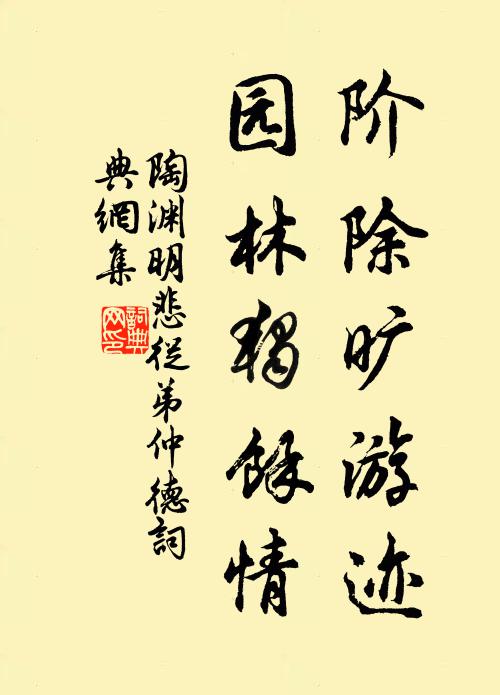 阶除旷游迹
园林独馀情
陶渊明悲従弟仲德詞
典網集
詞典
网印